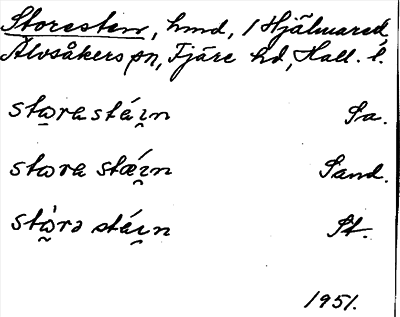 Storesten, hmd, / Hjälmared,
Älvsåkers sn, Fjäre hd, Hall. l.
stωra stéi̯n Sa.
stωra stǽi̯n Sand.
stὼrə stéi̯n St.
1951.